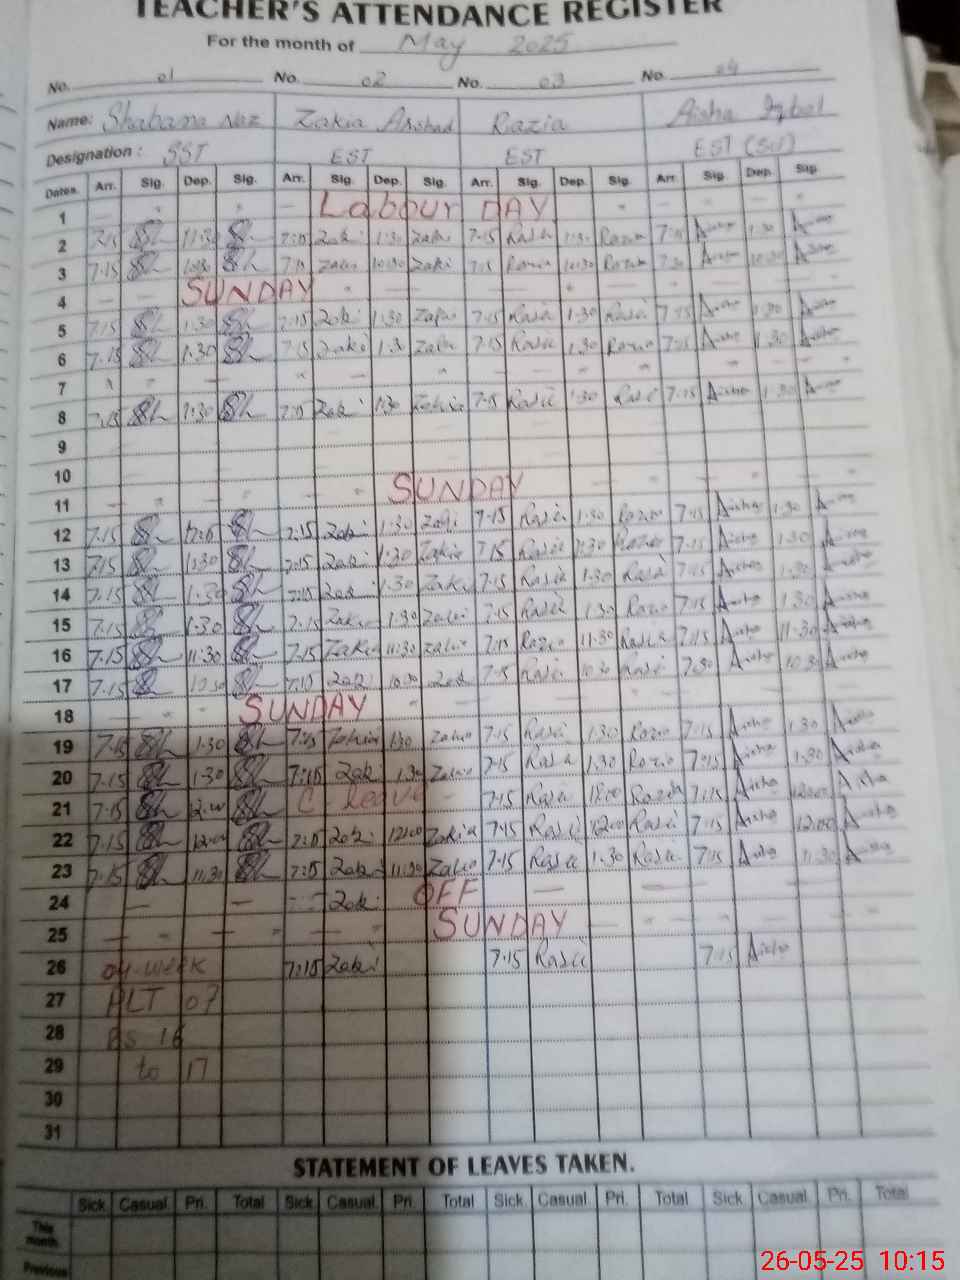 TEACHER'S ATTENDANCE REGISTER
For the month of May 2025
No. 01 No. 02 No. 03 No. 04
Name: Shabana Naz Zakia Arshad Razia Aisha Iqbal
Designation: SST EST EST EST (Sci)
Dates. Arr. Sig. Dep. Sig. Arr. Sig. Dep. Sig. Arr. Sig. Dep. Sig. Arr. Sig. Dep. Sig.
1 Labour DAY
2 7:15 11:30 7:15 Zaki 1:30 Zaki 7:15 Razia 1:30 Razia 7:15 Aisha 1:30 Aisha
3 7:15 10:30 7:15 Zaki 10:30 Zaki 7:15 Razia 10:30 Razia 7:30 Aisha 10:30 Aisha
4 SUNDAY
5 7:15 1:30 7:15 Zaki 1:30 Zaki 7:15 Razia 1:30 Razia 7:15 Aisha 1:30 Aisha
6 7:15 1:30 7:15 Zaki 1:30 Zaki 7:15 Razia 1:30 Razia 7:15 Aisha 1:30 Aisha
7
8 7:15 1:30 7:15 Zaki 1:30 Zakia 7:15 Razia 1:30 Razia 7:15 Aisha 1:30 Aisha
9
10
11 SUNDAY
12 7:15 7:15 Zaki 1:30 Zaki 7:15 Razia 1:30 Razia 7:15 Aisha 1:30 Aisha
13 7:15 1:30 7:15 Zaki 1:30 Zakia 7:15 Razia 1:30 Razia 7:15 Aisha 1:30 Aisha
14 7:15 1:30 7:15 Zaki 1:30 Zaki 7:15 Razia 1:30 Razia 7:15 Aisha 1:30 Aisha
15 7:15 1:30 7:15 Zakia 1:30 Zaki 7:15 Razia 1:30 Razia 7:15 Aisha 1:30 Aisha
16 7:15 11:30 7:15 Zakia 11:30 Zakia 7:15 Razia 11:30 Razia 7:15 Aisha 11:30 Aisha
17 7:15 10:30 7:15 Zaki 10:30 Zaki 7:15 Razia 10:30 Razia 7:30 Aisha 10:30 Aisha
18 SUNDAY
19 7:15 1:30 7:15 Zakia 1:30 Zakia 7:15 Razia 1:30 Razia 7:15 Aisha 1:30 Aisha
20 7:15 1:30 7:15 Zaki 1:30 Zakia 7:15 Razia 1:30 Razia 7:15 Aisha 1:30 Aisha
21 7:15 12:00 C-leave 7:15 Razia 12:00 Razia 7:15 Aisha 12:00 Aisha
22 7:15 12:00 7:15 Zaki 12:00 Zakia 7:15 Razia 12:00 Razia 7:15 Aisha 12:00 Aisha
23 7:15 11:30 7:15 Zaki 11:30 Zakia 7:15 Razia 1:30 Razia 7:15 Aisha 11:30 Aisha
24 Zaki OFF
25 SUNDAY
26 04-week 7:15 Zaki 7:15 Razia 7:15 Aisha
27 PLT 07
28 BS 16
29 to 17
30
31
STATEMENT OF LEAVES TAKEN.
Sick Casual Pri. Total Sick Casual Pri. Total Sick Casual Pri. Total Sick Casual Pri. Total
This month
Previous
26-05-25 10:15